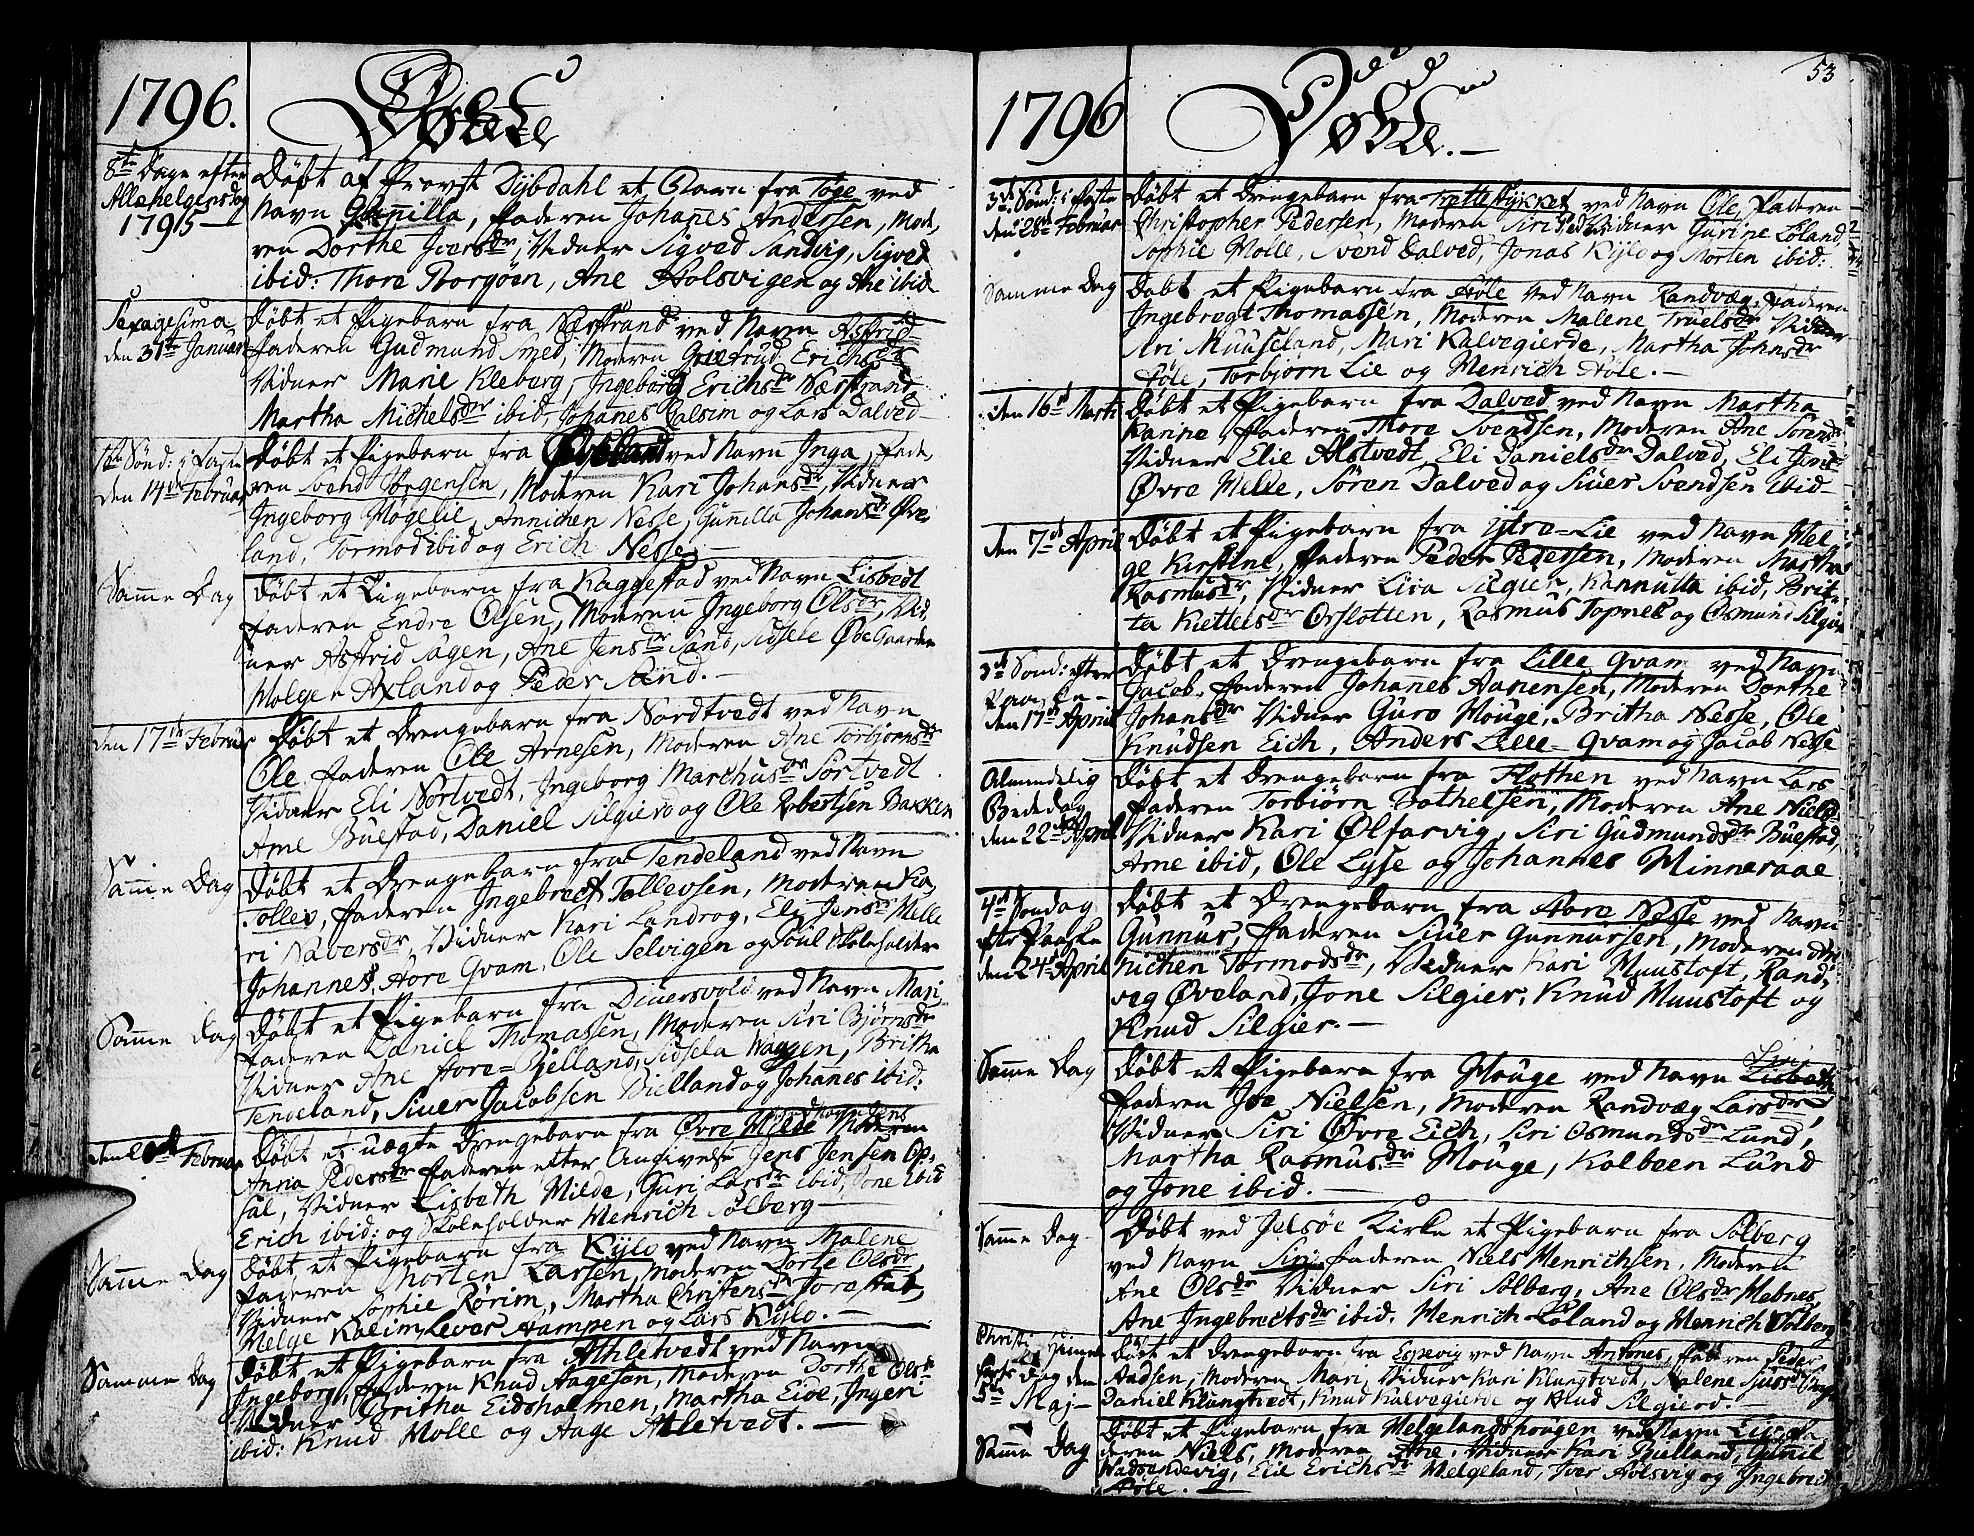 1796.
Døbte
8te Dage efter
Allehelgensdag
1795
Døbt af Provst Dybdahl et Barn fra Tøge ved
Navn Gunnilla, Faderen Johanes Andersen, Mode,
ren Dorthe Iversdr, Vidner Sigved Sandvig, Sigved
ibid: Thore Borgøen, Ane Holsvigen og Ane ibid
Sexagesima
den 31te Januar
Døbt et Pigebarn fra Nærstrand ved Navn Astrid
Faderen Gudmund Smed, Moderen Giertrud Erichsdr
Vidner Marie Kleberg, Ingeborg Erichsdr Nærstrand
Martha Michelsdr ibid, Johanes Galsim og Lars Dalved
1te Sønd: i Faste
den 14de Februar
Døbt et Pigebarn fra Øveland ved Navn Inga, Fade,
ren Svend Jørgensen, Moderen Kari Johansdr, Vidner
Ingeborg Høgelie, Annichen Nesse, Gunnilla Johansdr Øve
land, Tormod ibid og Erich Nesse
Samme Dag
Døbt et Pigebarn fra Raggestad ved Navn Lisbedt
Faderen Endre Olsen, Moderen Ingeborg Olsdr, Vid,
ner Astrid Sagen, Ane Jensdr Sand, Sidsele ØveGaarden
Holger Axland og Peder Sand.
den 17de Februar
Døbt et Drengebarn fra Nordtvedt ved Navn
Ole, Faderen Ole Arnesen, Moderen Ane Torbjørnsdr
Vidner Eli Nortvedt, Ingeborg Marchusdr Sortvedt
Arne Buestad, Daniel Silgierd og Ole Robertsen Bakken
Samme Dag
Døbt et Drengebarn fra Tendeland ved Navn
Tollev, Faderen Ingebrect Tollevsen, Moderen Ka,
ri Naversdr, Vidner Kari Landrog, Eli Jensdr Melle
Johannes Aore Qvam, Ole Selvigen og Poul Skoleholder
Samme Dag
Døbt et Pigebarn fra Diuersvold ved Navn Mari
Faderen Daniel Thomassen, Moderen Siri Bjørnsdr
Vidner Ane Aore Bielland, Sidsela Waagen, Britha
Tendeland, Siuer Jacobsen Bielland og Johanes ibid:
Februar
Døbt et uægte Drengebarn fra Øvre Milde ved Navn Jens Moderen
Anna Pedersdr Faderen efter Angivelse Jens Jensen Op,
sal, Vidner Lisbeth Milde, Guri Larsdr ibid, Jone ibid
Erich ibid: og Skoleholder Henrich Sølberg
Samme Dag
Døbt et Pigebarn fra Kÿlo ved Navn Malene
Faderen Morten Larsen, Moderen Dorte Olsdr
Vidner Sophie Rørim, Martha Christensdr
Helge Kalim, Lever Hampen og Lars Kÿlo.
Samme Dag
Døbt et Pigebarn fra Athletvedt ved Navn
Ingeborg, Faderen Knud Aagesøn, Moderen Dorthe Olsdr
Vidner Britha Eidsholmen, Martha Eide, Ingeri
ibid: Knud Molle og Aage Atletvedt.
53
1796
Døbte.
3de Sønd: i Faste
den 28de Februar
Døbt et Drengebarn fra Frettestykket ved Navn Ole, Faderen
Christopher Pedersen, Moderen Siri Vidner Gurine Løland,
Sophie Molle, Svend Dalved, Jonas Kÿlo og Morten ibid:
Samme Dag
Døbt et Pigebarn fra Høle ved Navn Randvæg, Faderen
Ingebregt Thomassen, Moderen Malene Truelsdr Vidner
Siri Muuseland, Mari Kalvegierde, Martha Johnsdr
Høle, Torbjørn Lie og Henrich Høle.
den 16de Marti
Døbt et Pigebarn fra Dalved ved Navn Martha
Karine, Faderen Thore Svendsen, Moderen Ane Sørensdr
Vidner Elie Alstvedt, Eli Danielsdr Dalved, Eli
Øvre Melle, Søren Dalved og Siuer Svendsen ibid
den 7de April
Døbt et Pigebarn fra Ÿtre-Lie ved Navn Hel
ge Kirstine, Faderen Peder Pedersen, Moderen Martha
Rasmusdr, Vidner Lisa Silgier, Kannutta ibid, Brit,
ta Kiettelsdr Ørslotten, Rasmus Topnes og Osmund Silgier
3de Sønd: efter
Paaske
den 17de April
Døbt et Drengebarn fra Lille Qvam ved Navn
Jacob, Faderen Johanes Aanensen, Moderen Dorthe
Johansdr Vidner Guro Houge, Britha Nesse, Ole
Knudsen Eich, Anders Lille-Qvam og Jacob Nesse
Almindelig
Bededag
den 22de April
Døbt et Drengebarn fra Flothen ved Navn Lars
Faderen Torbiørn Bothelsen, Moderen Ane Nielsdr
Vidner Kari Ølfarvig, Siri Gudmundsdr Buestad,
Arne ibid, Ole Lyse og Johannes Hinneraae
4de Søndag
eftr Paaske
den 24de April
Døbt et Drengebarn fra Aore Nesse ved Navn
Gunnur, Faderen Siuer Gunnursen, Moderen An
nichen Tormodsdr, Vidner Kari Muustoft, Rand,
veg Øveland, Jone Silgier, Knud Muustoft og
Knud Silgier.
Samme Dag
Døbt et Pigebarn fra Houge ved Navn Siri Lisbeth
Faderen Joe Nielsen, Moderen Randvæg Larsdr,
Vidner Siri Øvre Eich, Siri Osmundsdr Lund,
Martha Rasmusdr Houge, Kolbeen Lund
og Jone ibid.
Samme Dag
Døbt ved Jelsøe Kirke et Pigebarn fra Sølberg
ved Navn Siri Faderen Niels Henrichsen, Moderen
Ane Olsdr Vidner Siri Sølberg, Ane Olsdr Hebnes
Ane Ingebrectsdr ibid. Henrich Løland og Henrich Sølberg
Christi Himmel
farts Dag den
5te Maj
Døbt et Drengebarn fra Espevig ved Navn Antones, Faderen Peder
Aadsen, Moderen Mari, Vidner Kari Klungtvedt, Malene
Daniel Klungtvedt, Knud Kalvegierde og Aad Silgierd.
Samme Dag
Døbt et Pigebarn fra Helgelandshougen ved Navn
deren Niels, Moderen Ane. Vidner Kari Bielland, Gunil
Vadsendevig, Elie Erichsdr Helgeland, Iver Holsvig og Ingebrect
Høle.